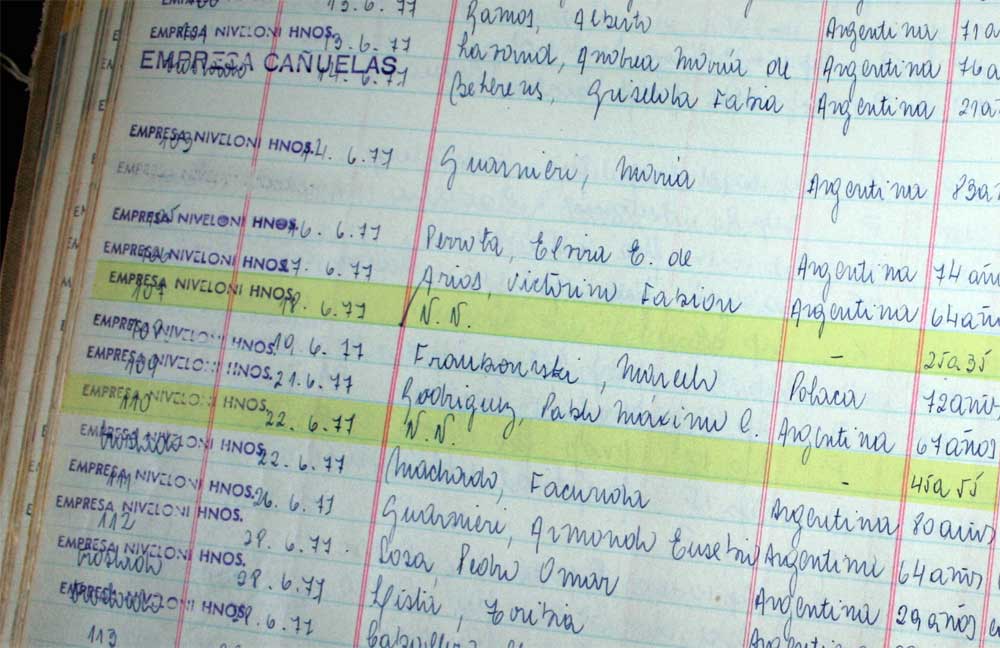 13.6.77 Ramos, Alberto Argentina 71 a
EMPRESA NIVELONI HNOS. 13.6.77 Andrea María de Argentina 76 a
EMPRESA CAÑUELAS 14.6.77 Griselda Fabia Argentina 21 a
EMPRESA NIVELONI HNOS. 103 14.6.77 Guarnieri, María Argentina 83 a
EMPRESA NIVELONI HNOS. 105 16.6.77 Perrota, Elvira E. de Argentina 74 año
EMPRESA NIVELONI HNOS. 106 17.6.77 Arios, Victorino Fabion Argentina 64 años
EMPRESA NIVELONI HNOS. 107 18.6.77 N.N. - 25 a 35
EMPRESA NIVELONI HNOS. 108 19.6.77 Marcelo Polaca 72 años
EMPRESA NIVELONI HNOS. 109 21.6.77 Rodriguez, Pablo Máximo C. Argentina 67 años
EMPRESA NIVELONI HNOS. 110 22.6.77 N.N. - 45 a 55
EMPRESA NIVELONI HNOS. 22.6.77 Machado, Facunda Argentina 80 años
EMPRESA NIVELONI HNOS. 111 26.6.77 Guarnieri, Armando Eusebi Argentina 64 años
EMPRESA NIVELONI HNOS. 112 28.6.77 Sosa, Pedro Omar Argentina 29 años
EMPRESA NIVELONI HNOS. 28.6.77 Toribia Argentina
EMPRESA NIVELONI HNOS. 28.6.77
113